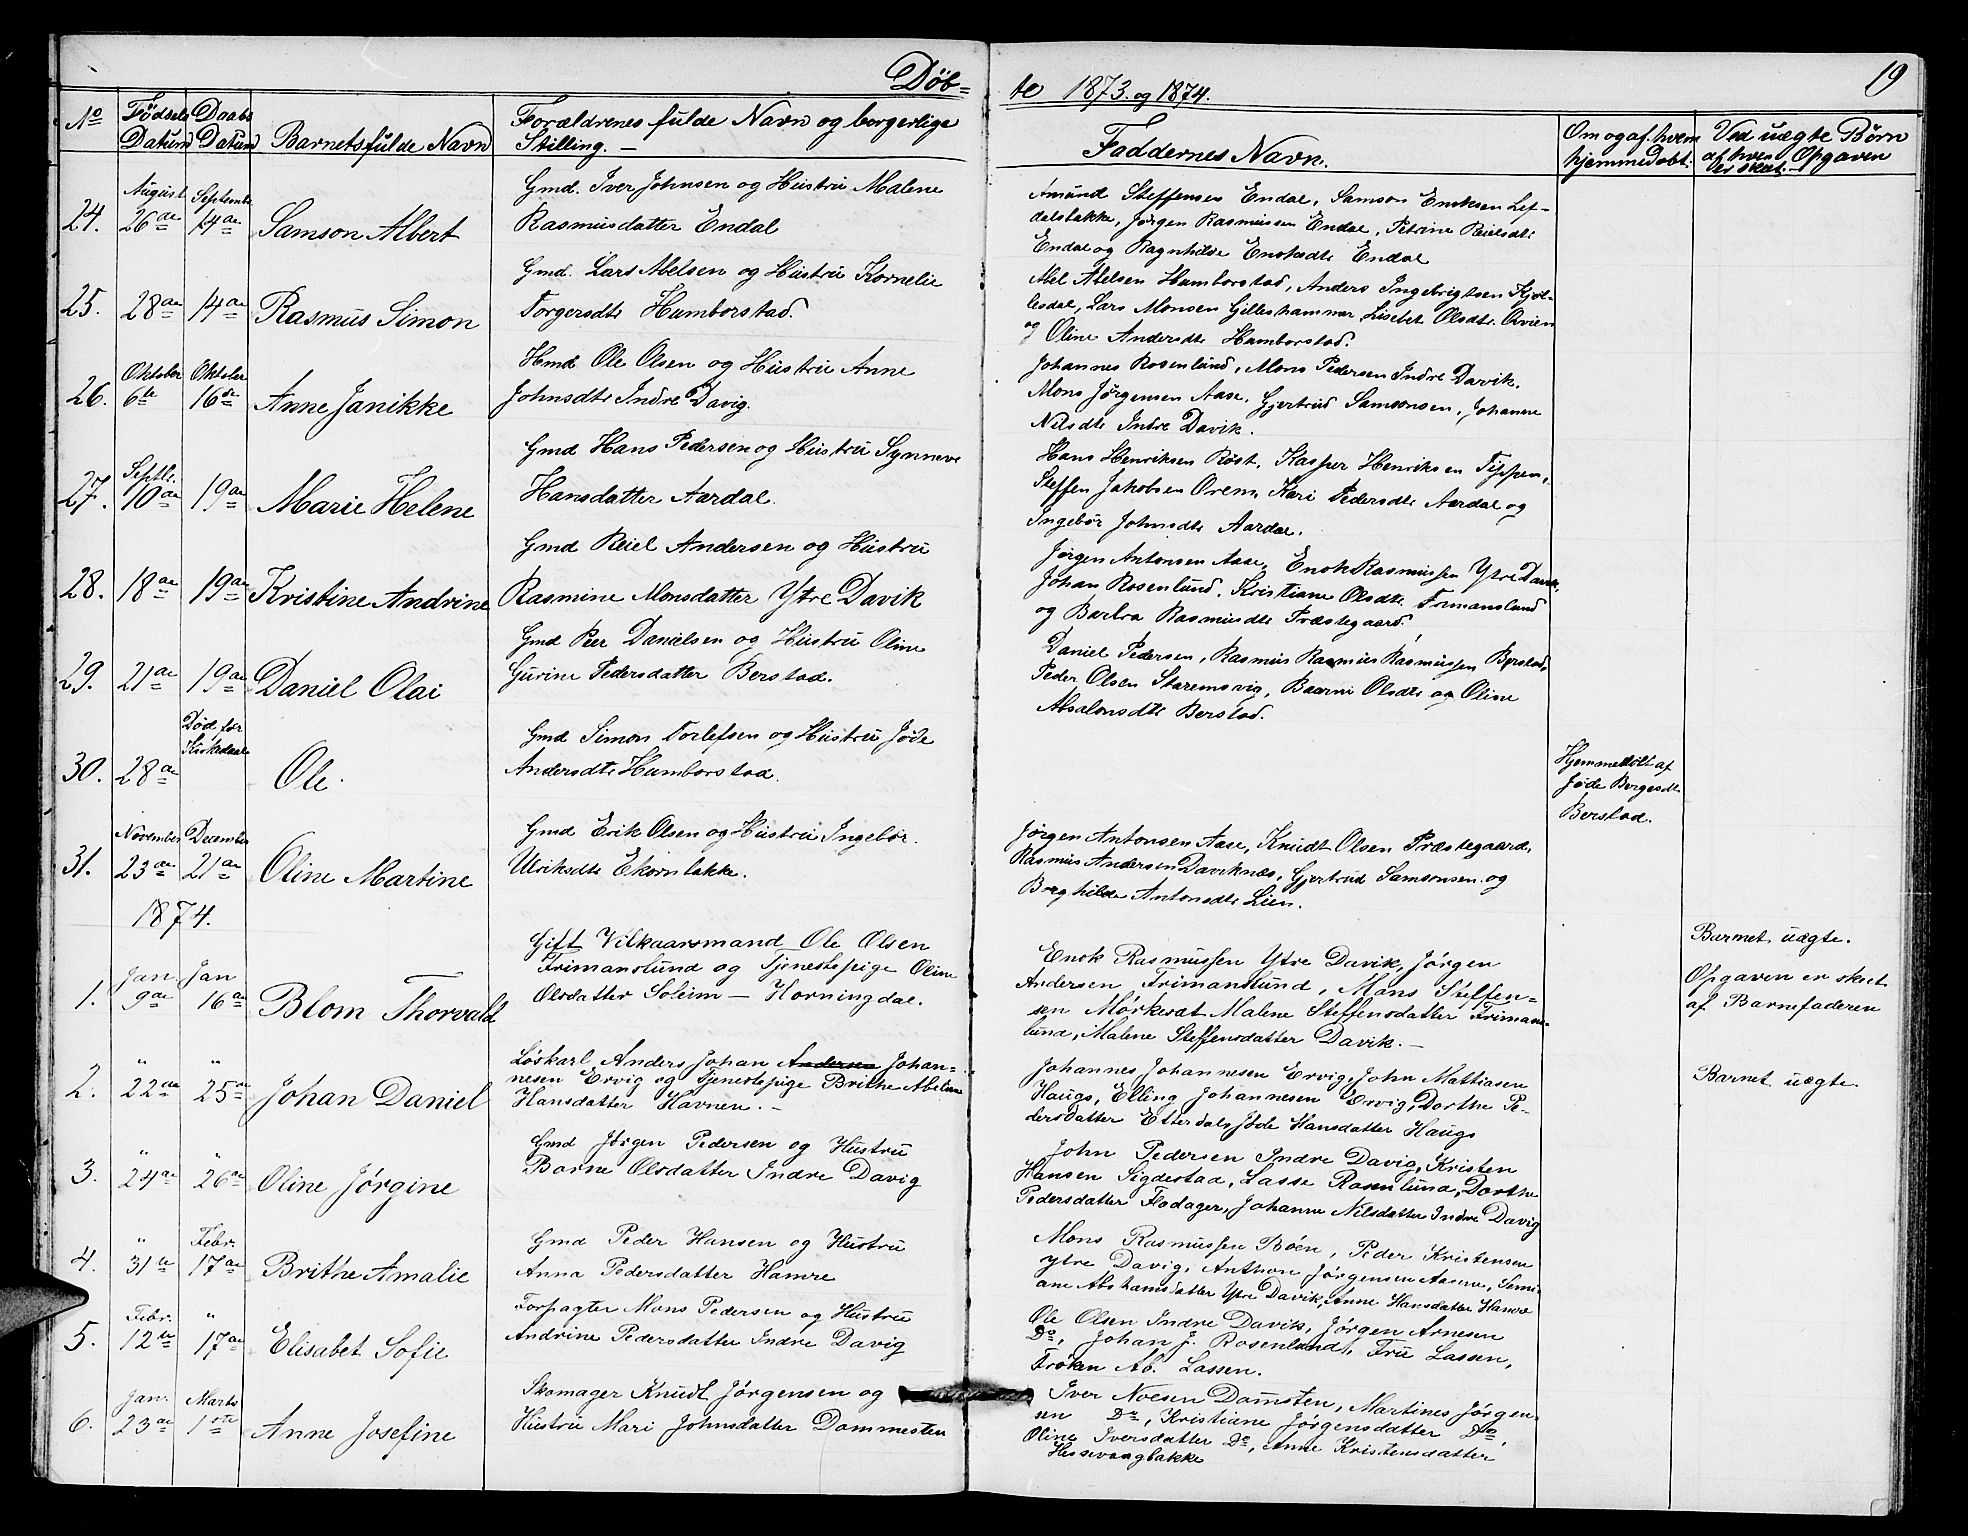 Døb-
te 1873. og 1874.
19
No
Fødsels Datum
Daabs Datum
Barnets fulde Navn
Forældrenes fulde Navn og borgerlige
Stilling. —
Faddernes Navn.
Om og af hvem
hjemmedøbt.
Ved uægte Børn
af hvem Opgaven
er skeet.
24. August 26de September 14de Samson Albert
Gmd. Iver Johnsen og Hustru Malene
Rasmusdatter Endal
Amund Steffensen Endal, Samson Enoksen Lef-
dalsbakke, Jørgen Rasmussen Endal, Petrine Reielsdt.
Endal og Ragnhilde Enoksdt. Endal
25. 28de 14de Rasmus Simon
Gmd. Lars Abelsen og Hustru Kornelie
Torgersdt. Humborstad.
Abel Abelsen Humborstad, Anders Ingebrigtsen Kjøl-
lesdal, Lars Monsen Gilleshammer, Lisebet Olsdt. Ovien
og Oline Andersdt. Humborstad.
26. Oktober 6te Oktober 16de Anne Janikke
Hmd Ole Olsen og Hustru Anne
Johnsdt. Indre Davig.
Johannes Rosenlund, Mons Pedersen Indre Davik.
Mons Jørgensen Aase, Gjertrud Samsonsen, Johanne
Nilsdt. Indre Davik.
27. Septbr. 10de 19de Marie Helene
Gmd Hans Pedersen og Hustru Synneve
Hansdatter Aardal.
Hans Henriksen Røst, Kasper Henriksen Tippen,
Steffen Jakobsen Orem, Kari Pedersdt. Aardal og
Ingebør Johnsdt. Aardal.
28. 18de 19de Kristine Andrine
Gmd Reiel Andersen og Hustru
Rasmine Monsdatter Ytre Davik
Jørgen Antonsen Aase, Enok Rasmussen Ytre Davik,
Johan Rosenlund, Kristiane Olsdt. Frimanslund
og Barbra Rasmusdt. Præstegaard.
29. 21de 19de Daniel Olai
Gmd Peer Danielsen og Hustru Oline
Gurine Pedersdatter Berstad.
Daniel Pedersen, Rasmus Rasmus Rasmussen Berstad,
Peder Olsen Staremsvig, Olsdt. og Oline
Absalonsdt. Berstad.
30. 28de Død før Kirkedaab Ole.
Gmd Simon Torlefsen og Hustru Jøde
Andersdt. Humborstad.
Hjemmedøbt af
Jøde Børgesdt.
Berstad.
31. November 23de December 21de Oline Martine
Gmd Erik Olsen og Hustru Ingebør.
Ulriksdt. Ekornbakke.
Jørgen Antonsen Aase, Knudt Olsen Præstegaard,
Rasmus Andersen Daviknæs, Gjertrud Samsonsen og
Borghilde Antonsdt. Lien.
1874.
1. Jan 9de Jan 16de Blom Thorvald
Gift Vilkaarsmand Ole Olsen
Frimanslund og Tjenestepige Oline
Olsdatter Soleim — Horningdal.
Enok Rasmussen Ytre Davik, Jørgen
Andersen Frimanslund, Mons Steffen-
sen Mørkesæt, Malene Steffensdatter Frimans-
lund, Malene Steffensdatter Davik. —
Barnet uægte.
Opgaven er skeet
af Barnefaderen
2. " 22de " 25de Johan Daniel
Løskarl Anders Johan Andersen Johan-
nesen Ervig og Tjenestepige Brithe Abeline
Hansdatter Havnen. —
Johannes Johannesen Ervig, John Mattiasen
Haugs, Elling Johannesen Ervig, Dorthe Pe-
dersdatter Etterdal, Jøde Hansdatter Haugs
Barnet uægte.
3. " 24de " 26de Oline Jørgine
Gmd Jørgen Pedersen og Hustru
Barne Olsdatter Indre Davig
John Pedersen Indre Davig, Kristen
Hansen Sigdestad, Lasse Rosenlund, Dorthe
Pedersdatter Flodager, Johanne Nilsdatter Indre Davig
4. " 31te Febr. 17de Brithe Amalie
Gmd Peder Hansen og Hustru
Anna Pedersdatter Hamre
Mons Rasmussen Bøen, Peder Kristensen
ytre Davig, Anthon Jørgensen Aasene, Semi-
ane Abrahamsdatter Ytre Davik, Anne Hansdatter Hamre
5. Febr. 12te " 17de Elisabet Sofie
Forpagter Mons Pedersen og Hustru
Andrine Pedersdatter Indre Davig
Ole Olsen Indre Davik, Jørgen Arnesen
Do, Johan J. Rosenlund, Fru Lassen,
Frøken Ab. Lassen.
6. Jan. 23de Marts 1ste Anne Josefine
Skomager Knudt Jørgensen og
Hustru Mari Johnsdatter Dommesten
Iver Noesen Domsten, Martines Jørgen-
sen Do, Kristiane Jørgensdatter Do,
Oline Iversdatter Do, Anne Kristensdatter
Hessevaagbakke